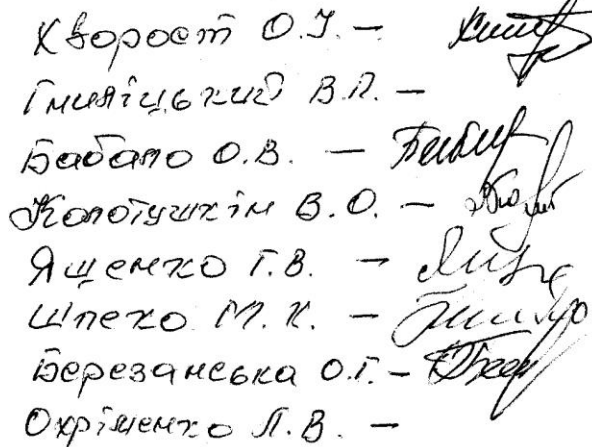 Хворост О.І. –
Гнилицький В.П. –
Бабало О.В. –
Колотушкін В.О. –
Ященко Г.В. –
Шпеко М.К. –
Березанська О.Г. –
Охріменко Л.В. –